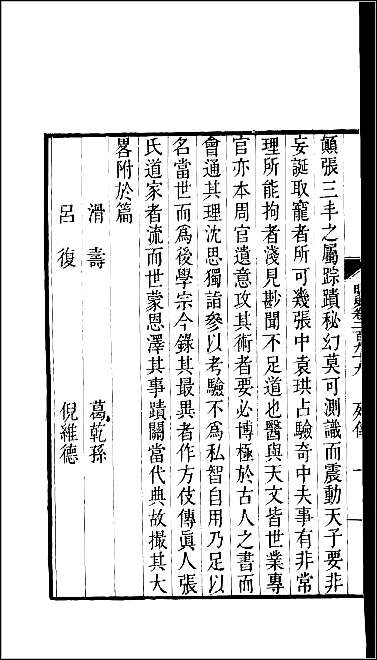 顛張三丰之屬踪蹟秘幻莫可測識而震動天子要非
妄誕取寵者所可幾張中袁珙占驗奇中夫事有非常
理所能拘者淺見尠聞不足道也醫與天文皆世業專
官亦本周官遺意攻其術者要必博極於古人之書而
會通其理沈思獨詣參以考驗不為私智自用乃足以
名當世而為後學宗今錄其最異者作方伎傳眞人張
氏道家者流而世蒙恩澤其事蹟關當代典故撮其大
畧附於篇
滑壽 葛乾孫
呂復 倪維德